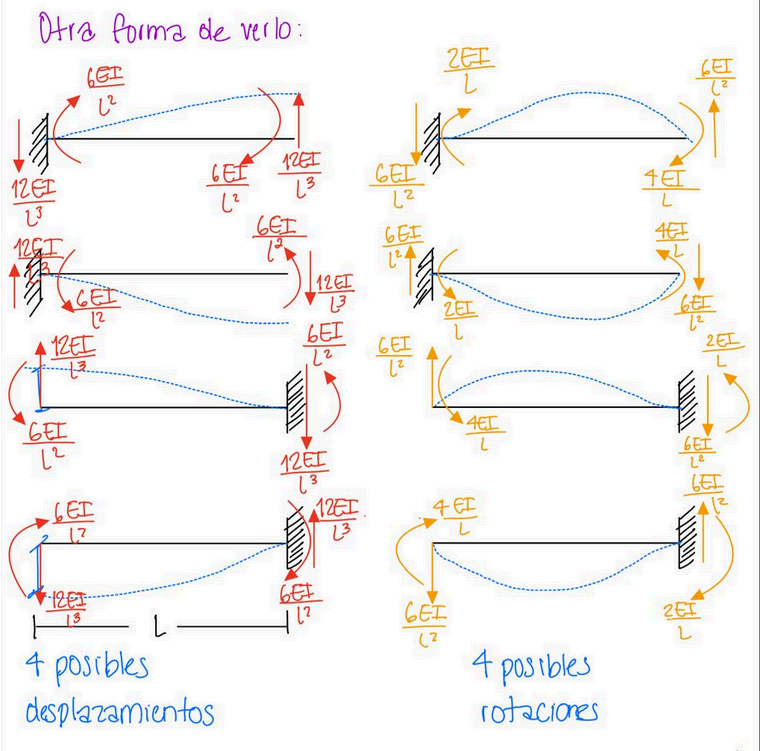 Otra forma de verlo:
6EI/L²
12EI/L³
6EI/L²
12EI/L³
2EI/L
6EI/L²
6EI/L²
4EI/L
12EI/L³
6EI/L²
6EI/L²
12EI/L³
6EI/L²
2EI/L
4EI/L
6EI/L²
12EI/L³
6EI/L²
6EI/L²
12EI/L³
6EI/L²
4EI/L
2EI/L
6EI/L²
6EI/L²
12EI/L³
12EI/L³
6EI/L²
4EI/L
6EI/L²
6EI/L²
2EI/L
L
4 posibles
desplazamientos
4 posibles
rotaciones